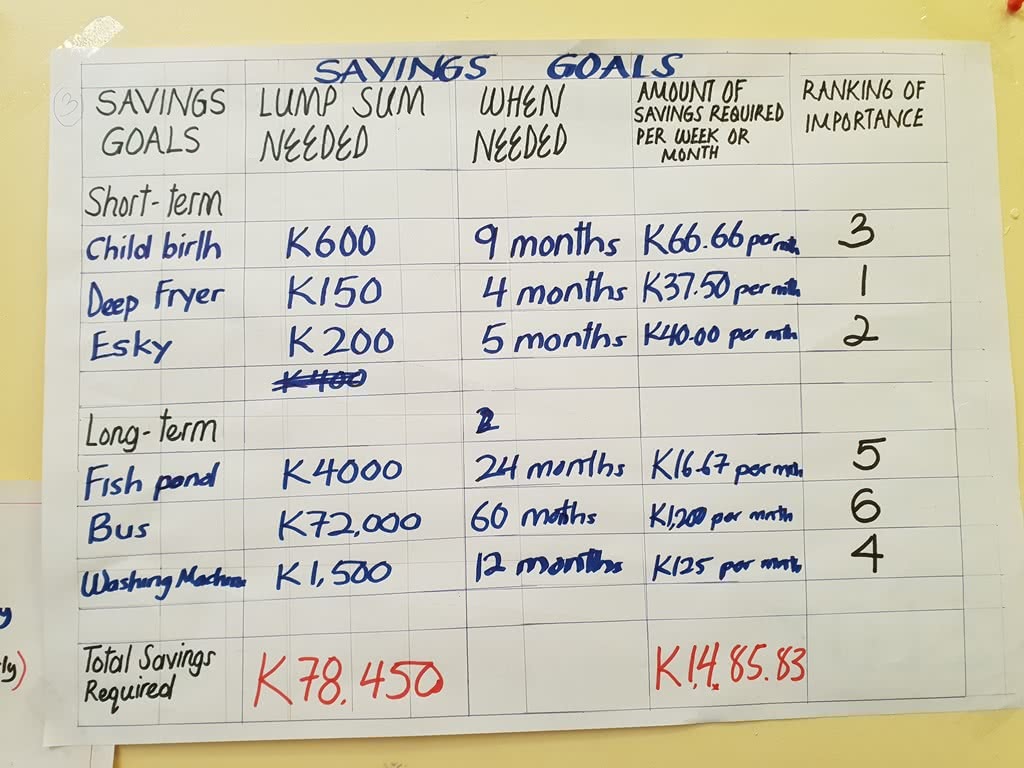 SAVINGS GOALS
3
SAVINGS GOALS
LUMP SUM NEEDED
WHEN NEEDED
AMOUNT OF SAVINGS REQUIRED PER WEEK OR MONTH
RANKING OF IMPORTANCE
Short-term
Child birth K600 9 months K66.66 per mth 3
Deep Fryer K150 4 months K37.50 per mth 1
Esky K200 5 months K40.00 per mth 2
K400
Long-term 2
Fish pond K4000 24 months K16.67 per mth 5
Bus K72,000 60 moths K1,200 per mnth 6
Washing Machine K1,500 12 months K125 per mnth 4
Total Savings Required K78,450 K1,4,85.83
y
ly)